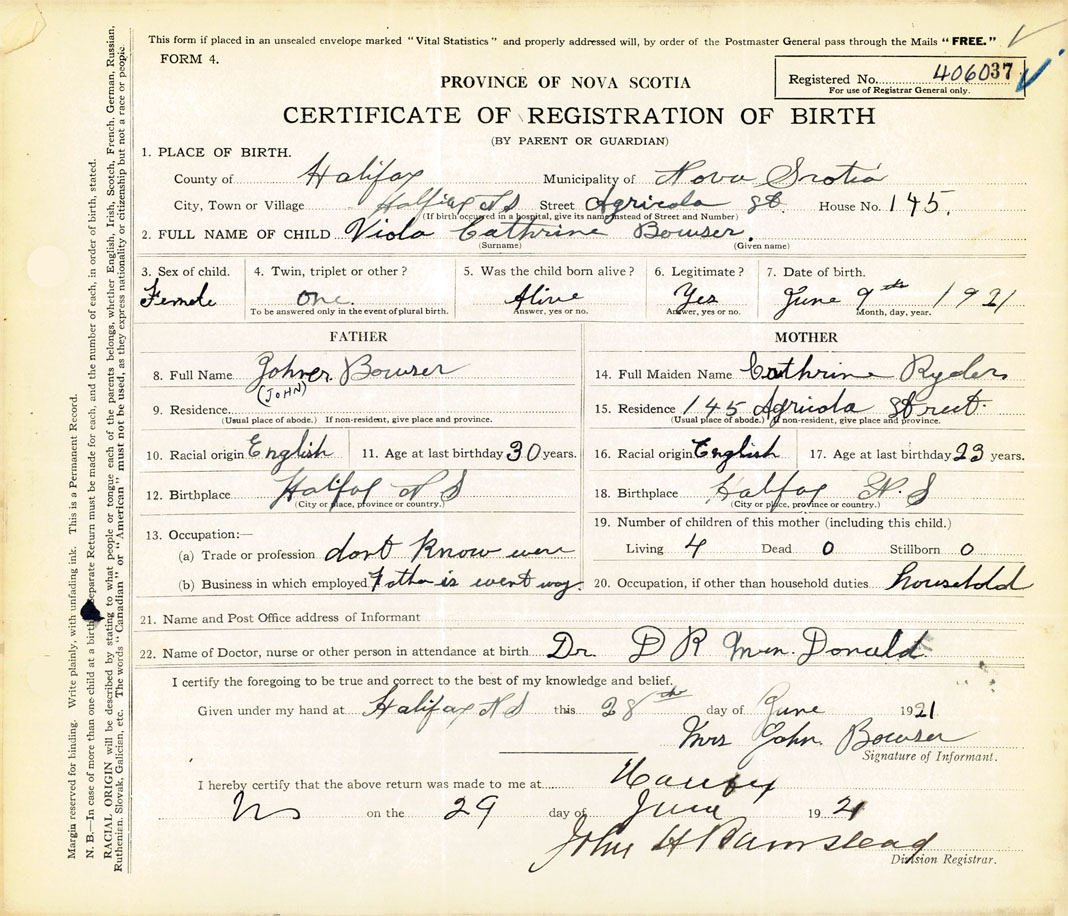 This form if placed in an unsealed envelope marked "Vital Statistics" and properly addressed will, by order of the Postmaster General pass through the Mails "FREE."
FORM 4.
Registered No. 406037
For use of Registrar General only.
PROVINCE OF NOVA SCOTIA
CERTIFICATE OF REGISTRATION OF BIRTH
(BY PARENT OR GUARDIAN)
1. PLACE OF BIRTH.
County of Halifax Municipality of Nova Scotia
City, Town or Village Halfiax N S Street Agricola St. House No. 145.
(If birth occurred in a hospital, give its name instead of Street and Number)
2. FULL NAME OF CHILD Viola Cathrine Bowser.
(Surname) (Given name)
3. Sex of child. 4. Twin, triplet or other? 5. Was the child born alive? 6. Legitimate? 7. Date of birth.
Female one. Alive Yes June 9th 1921
To be answered only in the event of plural birth. Answer, yes or no. Answer, yes or no. Month, day, year.
FATHER
8. Full Name Bowser
(JOHN)
9. Residence
(Usual place of abode.) If non-resident, give place and province.
10. Racial origin English 11. Age at last birthday 30 years.
12. Birthplace Halfax N S
(City or place, province or country.)
13. Occupation:—
(a) Trade or profession dont know were
(b) Business in which employed Father is went way.
MOTHER
14. Full Maiden Name Cathrine Ryders
15. Residence 145 Agricola Street.
(Usual place of abode.) If non-resident, give place and province.
16. Racial origin English 17. Age at last birthday 23 years.
18. Birthplace Halfax N. S
(City or place, province or country.)
19. Number of children of this mother (including this child.)
Living 4 Dead 0 Stillborn 0
20. Occupation, if other than household duties household
21. Name and Post Office address of Informant
22. Name of Doctor, nurse or other person in attendance at birth Dr. D R Donald
I certify the foregoing to be true and correct to the best of my knowledge and belief.
Given under my hand at Halifax N S this 28th day of June 1921
Mrs John Bowser
Signature of Informant.
I hereby certify that the above return was made to me at Halifax
NS on the 29 day of June 1921
John H Barnstead
Division Registrar.
Margin reserved for binding. Write plainly, with unfading ink. This is a Permanent Record.
N. B.—In case of more than one child at a birth, a separate Return must be made for each, and the number of each, in order of birth, stated.
RACIAL ORIGIN will be described by stating to what people or tongue each of the parents belongs, whether English, Irish, Scotch, French, German, Russian,
Ruthenian, Slovak, Galician, etc. The words "Canadian" or "American" must not be used, as they express nationality or citizenship but not a race or people.